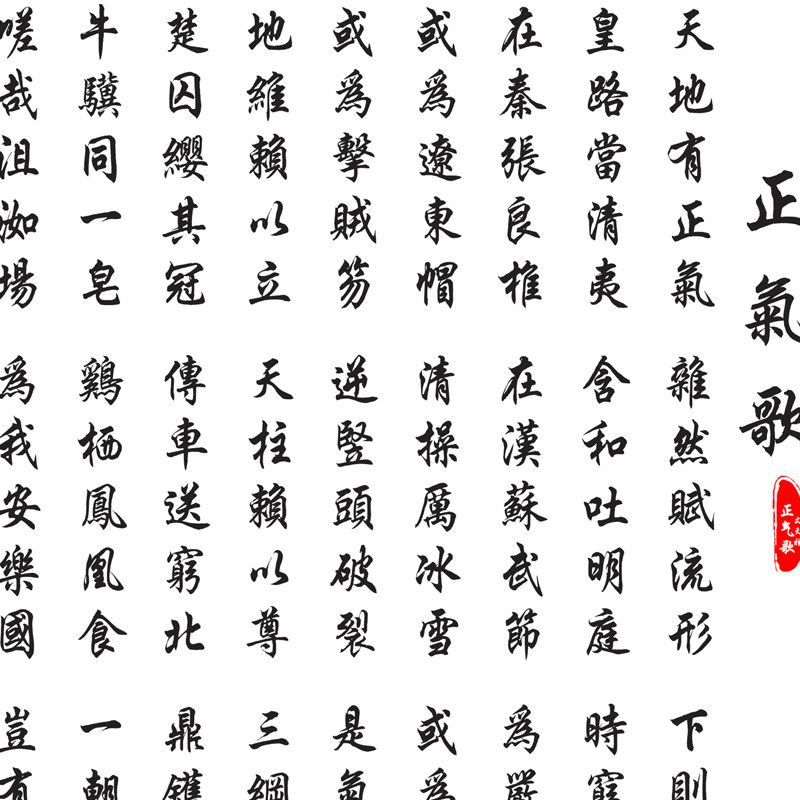 正氣歌
正气歌
天地有正氣 雜然賦流形 下則
皇路當清夷 含和吐明庭 時窮
在秦張良椎 在漢蘇武節 爲嚴
或爲遼東帽 清操厲冰雪 或爲
或爲擊賊笏 逆豎頭破裂 是氣
地維賴以立 天柱賴以尊 三綱
楚囚纓其冠 傳車送窮北 鼎鑊
牛驥同一皂 鷄栖鳳凰食 一朝
嗟哉沮洳場 爲我安樂國 豈有